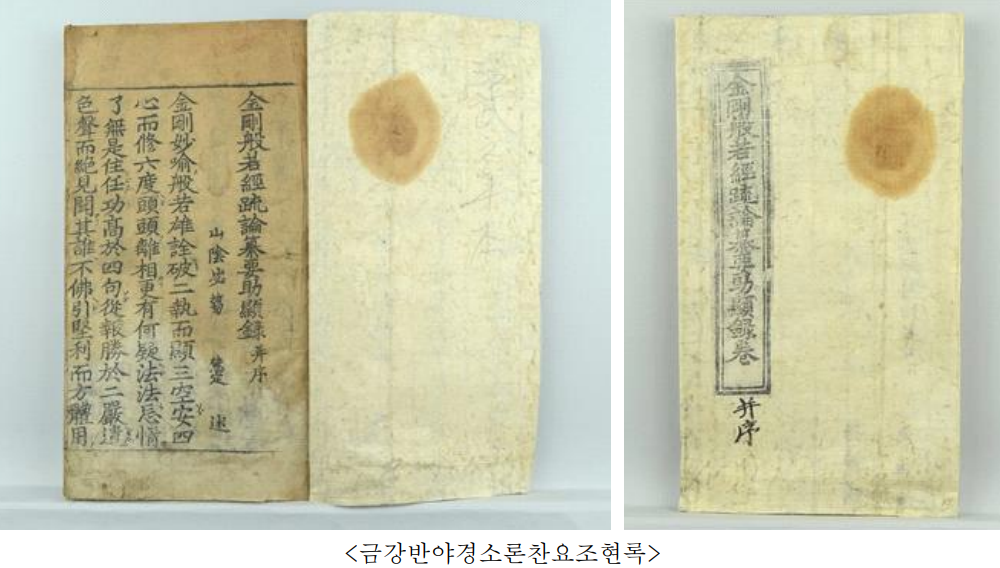 金剛般若經疏論纂要助顯錄 并序
山陰苾蒭 述
金剛妙喻般若雄詮破二執而顯三空安四
心而修六度頭頭離相更有何疑法法忘情
了無是住任功高於四句從報勝於二嚴遣
色聲而絶見聞其誰不佛引堅利而方體用
金剛般若經疏論纂要助顯錄卷
并序
<금강반야경소론찬요조현록>